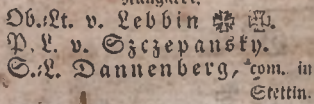 Ob.=Lt. v. Lebbin ✠ ✠.
P. L. v. Szczepansky.
S.=L. Dannenberg, com. in
Stettin.